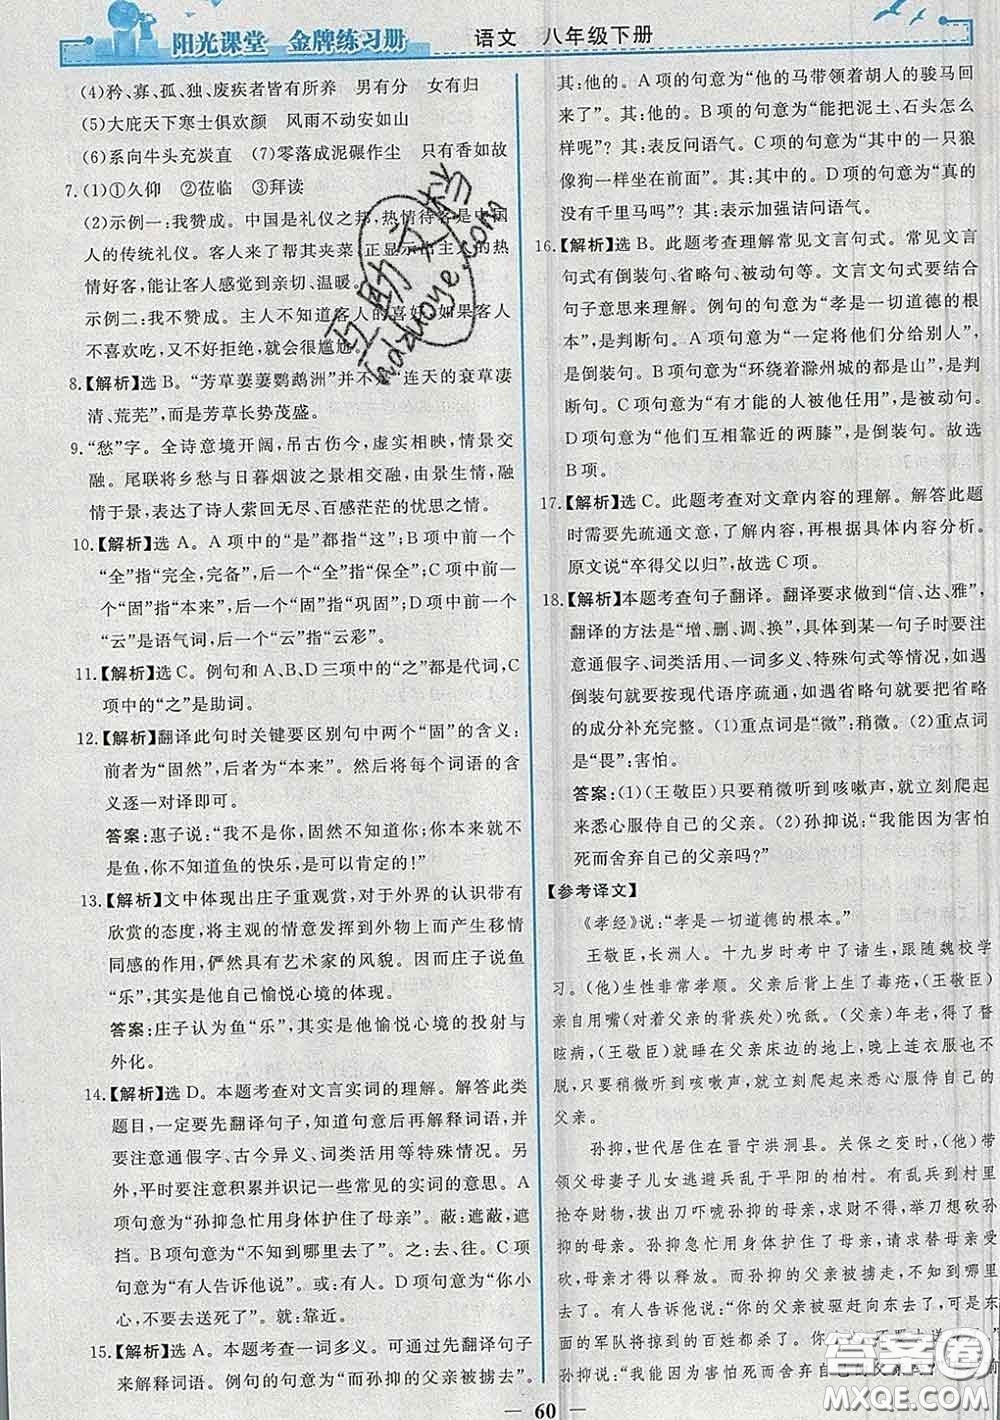 阳光课堂 金牌练习册 语文 八年级下册
(4)矜、寡、孤、独、废疾者皆有所养 男有分 女有归
(5)大庇天下寒士俱欢颜 风雨不动安如山
(6)系向牛头充炭直 (7)零落成泥碾作尘 只有香如故
7.(1)①久仰 ②莅临 ③拜读
(2)示例一:我赞成。中国是礼仪之邦,热情待客是中国
人的传统礼仪。客人来了帮其夹菜,正显示出主人的热
情好客,能让客人感觉到亲切、温暖。
示例二:我不赞成。主人不知道客人的喜好,如果客人
不喜欢吃,又不好拒绝,就会很尴尬。
8.【解析】选 B。“芳草萋萋鹦鹉洲”并不是“连天的衰草凄
清、荒芜”,而是芳草长势茂盛。
9.“愁”字。全诗意境开阔,吊古伤今,虚实相映,情景交
融。尾联将乡愁与日暮烟波之景相交融,由景生情,情
景相融,表达了诗人萦回无尽、百感茫茫的忧思之情。
10.【解析】选 A。A 项中的“是”都指“这”;B 项中前一个
“全”指“完全,完备”,后一个“全”指“保全”;C 项中前一
个“固”指“本来”,后一个“固”指“巩固”;D 项中前一个
“云”是语气词,后一个“云”指“云彩”。
11.【解析】选 C。例句和 A、B、D 三项中的“之”都是代词,C
项中的“之”是助词。
12.【解析】翻译此句时关键要区别句中两个“固”的含义:
前者为“固然”,后者为“本来”。然后将每个词语的含
义逐一对译即可。
答案:惠子说:“我不是你,固然不知道你;你本来就不
是鱼,你不知道鱼的快乐,是可以肯定的!”
13.【解析】文中体现出庄子重观赏,对于外界的认识带有
欣赏的态度,将主观的情意发挥到外物上而产生移情
同感的作用,俨然具有艺术家的风貌。因而庄子说鱼
“乐”,其实是他自己愉悦心境的体现。
答案:庄子认为鱼“乐”,其实是他愉悦心境的投射与
外化。
14.【解析】选 D。本题考查对文言实词的理解。解答此类
题目,一定要先翻译句子,知道句意后再解释词语,同时
要注意通假字、古今异义、词类活用等特殊情况。另
外,平时要注意积累并识记一些常见的实词的意思。A
项句意为“孙抑急忙用身体护住了母亲”。蔽:遮蔽,遮
挡。B 项句意为“不知到哪里去了”。之:去、往。C 项
句意为“有人告诉他说”。或:有人。D 项句意为“你小
心,不要去送死了”。就:靠近。
15.【解析】选 A。本题考查一词多义。可通过先翻译句子
来解释词语。例句的句意为“而孙抑的父亲被掳去”。
其:他的。A 项的句意为“他的马带领着胡人的骏马回
来了”。其:他的。B 项的句意为“能把泥土、石头怎么
样呢”。其:表反问语气。C 项的句意为“其中的一只狼
像狗一样坐在前面”。其:其中。D 项的句意为“真的
没有千里马吗”?其:表示加强诘问语气。
16.【解析】选 B。此题考查理解常见文言句式。常见文言
句式有倒装句、省略句、被动句等。文言文句式要结合
句子意思来理解。例句的句意为“孝是一切道德的根本”,
是判断句。A 项句意为“一定将他们分给别人”,
是倒装句。B 项句意为“环绕着滁州城的都是山”,是
判断句。C 项句意为“有才能的人被他任用”,是被动
句。D 项句意为“他们互相靠近的两膝”,是倒装句。故选
B 项。
17.【解析】选 C。此题考查对文章内容的理解。解答此题
时需要先疏通文意,了解内容,再根据具体内容分析。
原文说“卒得父以归”,故选 C 项。
18.【解析】本题考查句子翻译。翻译要求做到“信、达、雅”,
翻译的方法是“增、删、调、换”,具体到某一句子时要注
意通假字、词类活用、一词多义、特殊句式等情况,如遇
倒装句就要按现代语序疏通,如遇省略句就要把省略
的成分补充完整。(1)重点词是“微”:稍微。(2)重点词
是“畏”:害怕。
答案:(1)(王敬臣)只要稍微听到咳嗽声,就立刻爬起
来悉心服侍自己的父亲。(2)孙抑说:“我能因为害怕
死而舍弃自己的父亲吗?”
【参考译文】
《孝经》说:“孝是一切道德的根本。”
王敬臣,长洲人。十九岁时考中了诸生,跟随魏校学
习。(他)生性非常孝顺。(父亲)后背上生了毒疮,(王敬臣)
亲自用嘴(对着父亲的背疾处)吮舐。(父亲)年老得了瞀
眩病,(王敬臣)就睡在父亲床边的地上,晚上连衣服都不
脱,只要稍微听到咳嗽声,就立刻爬起来悉心服侍自己的
父亲。
孙抑,世代居住在晋宁洪洞县。关保之变时,(他)带
领父母妻子儿女逃避兵乱于平阳的柏村。有乱兵到村里
抢夺财物,拔出刀吓唬孙抑的母亲,求财不得,举刀想砍孙
抑的母亲。孙抑急忙用身体护住了母亲,请求替母亲受
砍,母亲才得以释放。而孙抑的父亲被掳走,不知到哪里去
了。有人告诉他说:“你的父亲被驱赶向东走了,但是东
面的军队将掠到的百姓都杀了。你小心,不要去送死。”
孙抑说:“我能因为害怕死而舍弃自己的父亲吗?”
60
互助文档
hdzuoye.com
答案圈
MXQE.COM